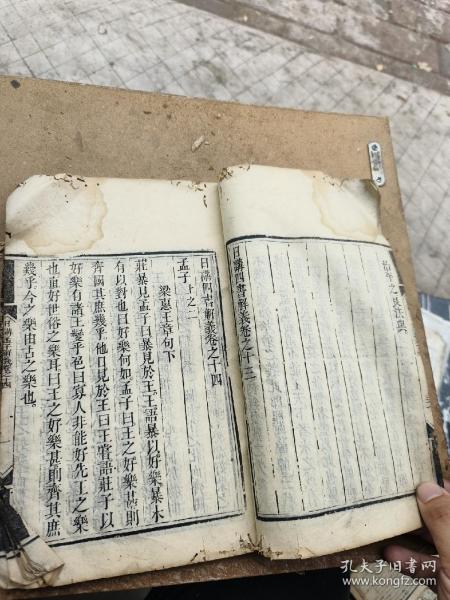 指年之良法與
日講四書解義卷之十三
日講四書解義卷之十四
孟子上之二
梁惠王章句下
莊暴見孟子曰暴見於王王語暴以好樂暴未
有以對也曰好樂何如孟子曰王之好樂甚則
齊國其庶幾乎他日見於王曰王嘗語莊子以
好樂有諸王變乎色曰寡人非能好先王之樂
也直好世俗之樂耳曰王之好樂甚則齊其庶
幾乎今之樂由古之樂也
孔夫子旧书网
www.kongfz.com